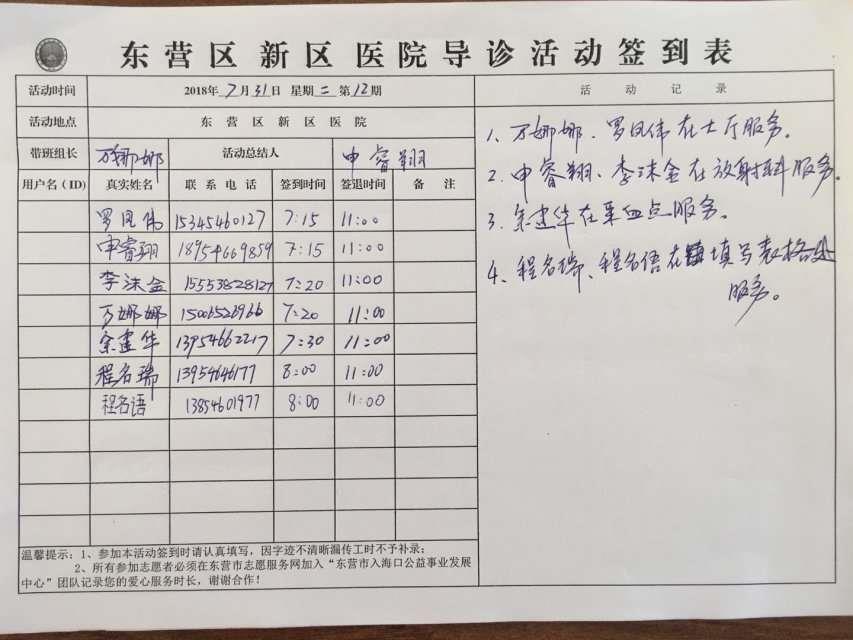 东营区新区医院导诊活动签到表
活动时间 2018年7月31日 星期二 第12期 活动记录
活动地点 东营区新区医院
带班组长 万娜娜 活动总结人 申睿翔
用户名(ID) 真实姓名 联系电话 签到时间 签退时间 备注
罗凤伟 15345460127 7:15 11:00
申睿翔 18954669859 7:15 11:00
李沫金 15553828127 7:20 11:00
万娜娜 15006526966 7:20 11:00
余建华 13954662217 7:30 11:00
程名瑞 13954646177 8:00 11:00
程名语 13854601977 8:00 11:00
温馨提示：1、参加本活动签到时请认真填写，因字迹不清晰漏传工时不予补录；
2、所有参加志愿者必须在东营市志愿服务网加入“东营市入海口公益事业发展
中心”团队记录您的爱心服务时长，谢谢合作！
1、万娜娜、罗凤伟在大厅服务。
2、申睿翔、李沫金在放射科服务。
3、余建华在采血点服务。
4、程名瑞、程名语在填写表格处
服务。